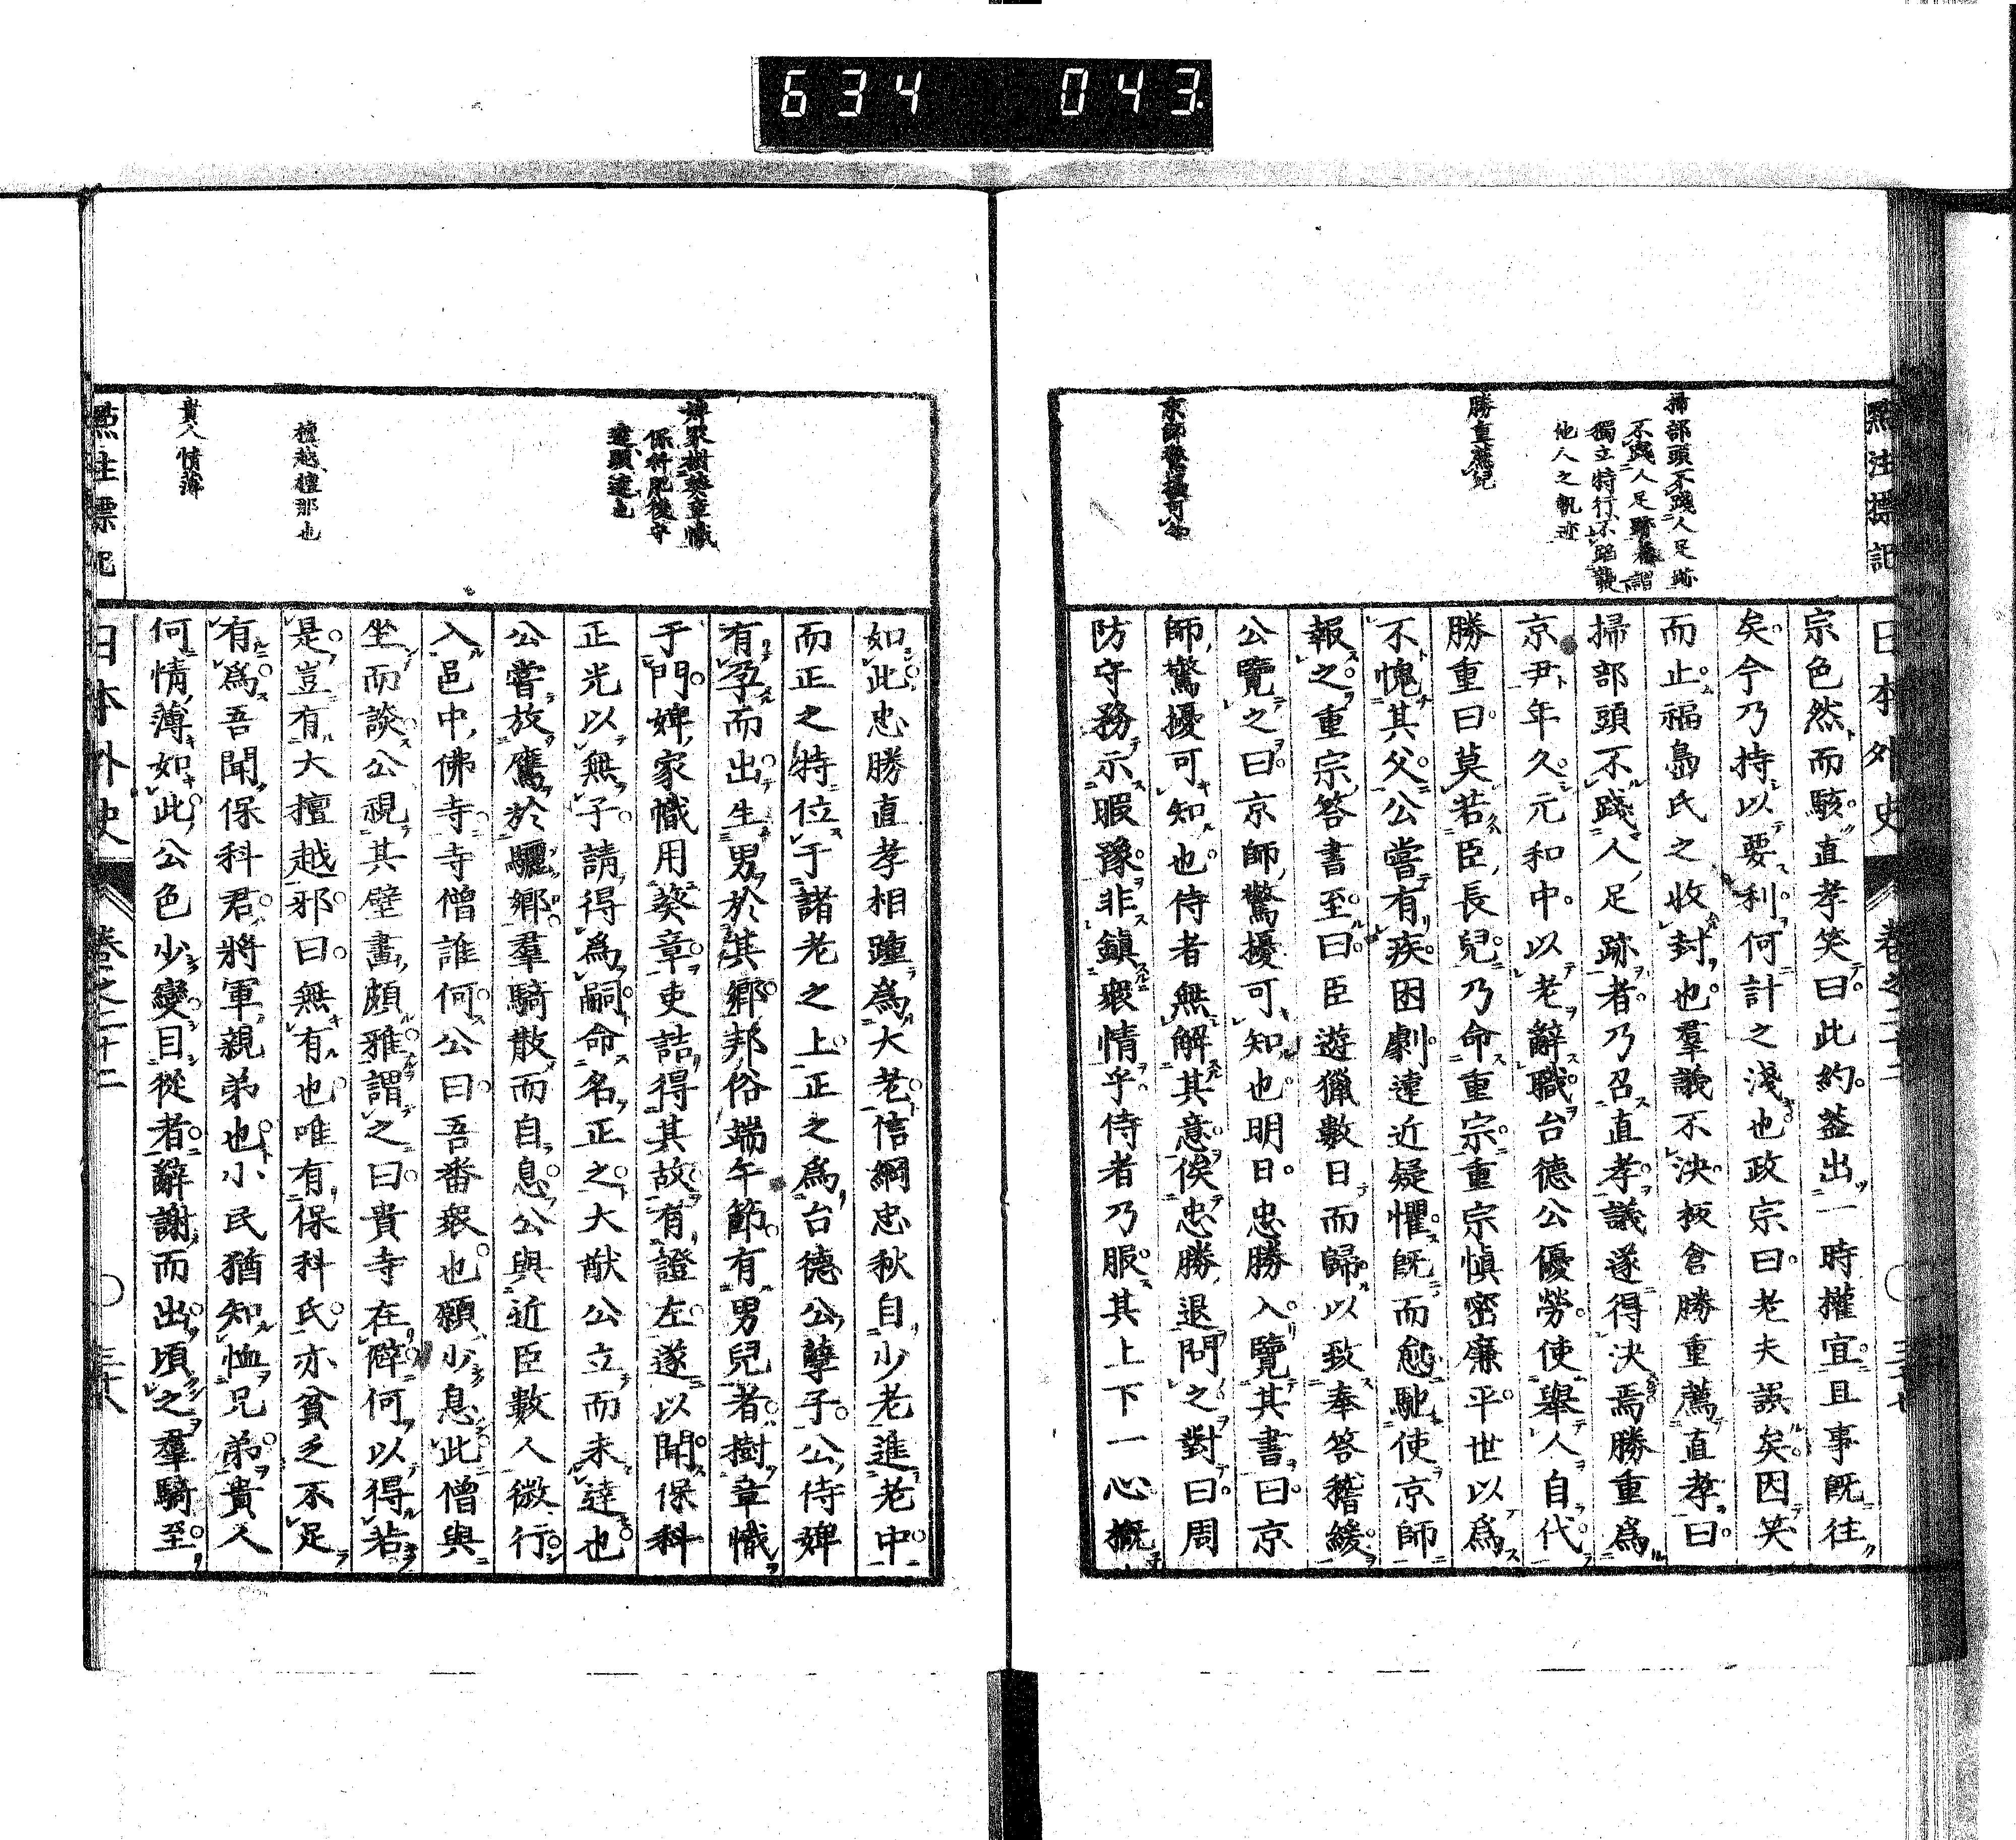 634 043
點注標記
日本外史 卷之二十二
掃部頭不踐人足跡
不踐人足跡
獨立特行不蹈襲
他人之軌迹
勝重薦兒
京師驚擾可知
宗色然而駭直孝笑曰此約葢出一時權宜且事既往
矣今乃持以要利何計之淺也政宗曰老夫誤矣因笑
而止福島氏之收封也羣議不決板倉勝重薦直孝曰
掃部頭不踐人足跡者乃召直孝議遂得決焉勝重爲
京尹年久元和中以老辭職台德公優勞使舉人自代
勝重曰莫若臣長兒乃命重宗重宗愼密廉平世以爲
不愧其父公嘗有疾困劇遠近疑懼既而愈馳使京師
報之重宗答書至曰臣遊獵數日而歸以致奉答稽緩
公覽之曰京師驚擾可知也明日忠勝入覽其書曰京
師驚擾可知也侍者無解其意俟忠勝退問之對曰周
防守務示暇豫非鎭衆情乎侍者乃服其上下一心概
婢聚樹葵章幟
保科肥後守
達顯達也
檀越檀那也
貴人情薄
如此忠勝直孝相踵爲大老信綱忠秋自少老進老中
而正之特位于諸老之上正之爲台德公孽子公侍婢
有孕而出生男於其鄉邦俗端午節有男兒者樹章幟
于門婢家幟用葵章吏詰得其故有證左遂以聞保科
正光以無子請得爲嗣命名正之大猷公立而未達也
公嘗放鷹於驪鄉羣騎散而自息公與近臣數人微行
入邑中佛寺寺僧誰何公曰吾番衆也願少息此僧與
坐而談公視其壁畫頗雅謂之曰貴寺在僻何以得若
是豈有大檀越邪曰無有也唯有保科氏亦貧乏不足
有爲吾聞保科君將軍親弟也小民猶知恤兄弟貴人
何情薄如此公色少變目從者辭謝而出頃之羣騎至
點注標記
日本外史 卷之二十二 三十八